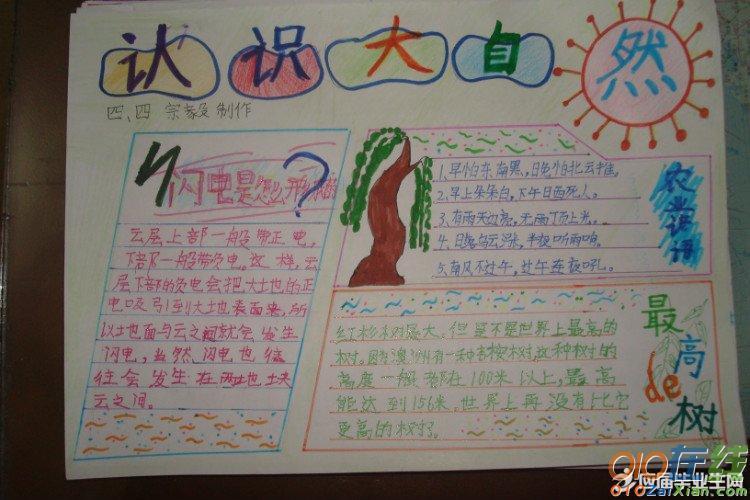 认识大自然
四、四 宗毅制作
闪电是怎么形成的?
云层上部一般带正电,
下部一般带负电。这样,云
层下部的负电会把大地的正
电吸引到大地表面来,所
以地面与云之间就会发生
闪电,当然,闪电也往
往会发生在两块
云之间。
农业谚语
1.早怕东南黑,晚怕北云推。
2.早上朵朵白,下午日西死人。
3.有雨天边亮,无雨顶上光。
4.日落乌云涨,半夜听雨响。
5.南风不过午,过午连夜吼。
最高de树
红杉树最大。但是不是世界上最高的
树。因为澳洲有一种杏桉树,这种树的
高度一般都在100米以上,最高
能达到156米。世界上再没有比它
更高的树了。
910在线
应届毕业生网
910zaixian.com